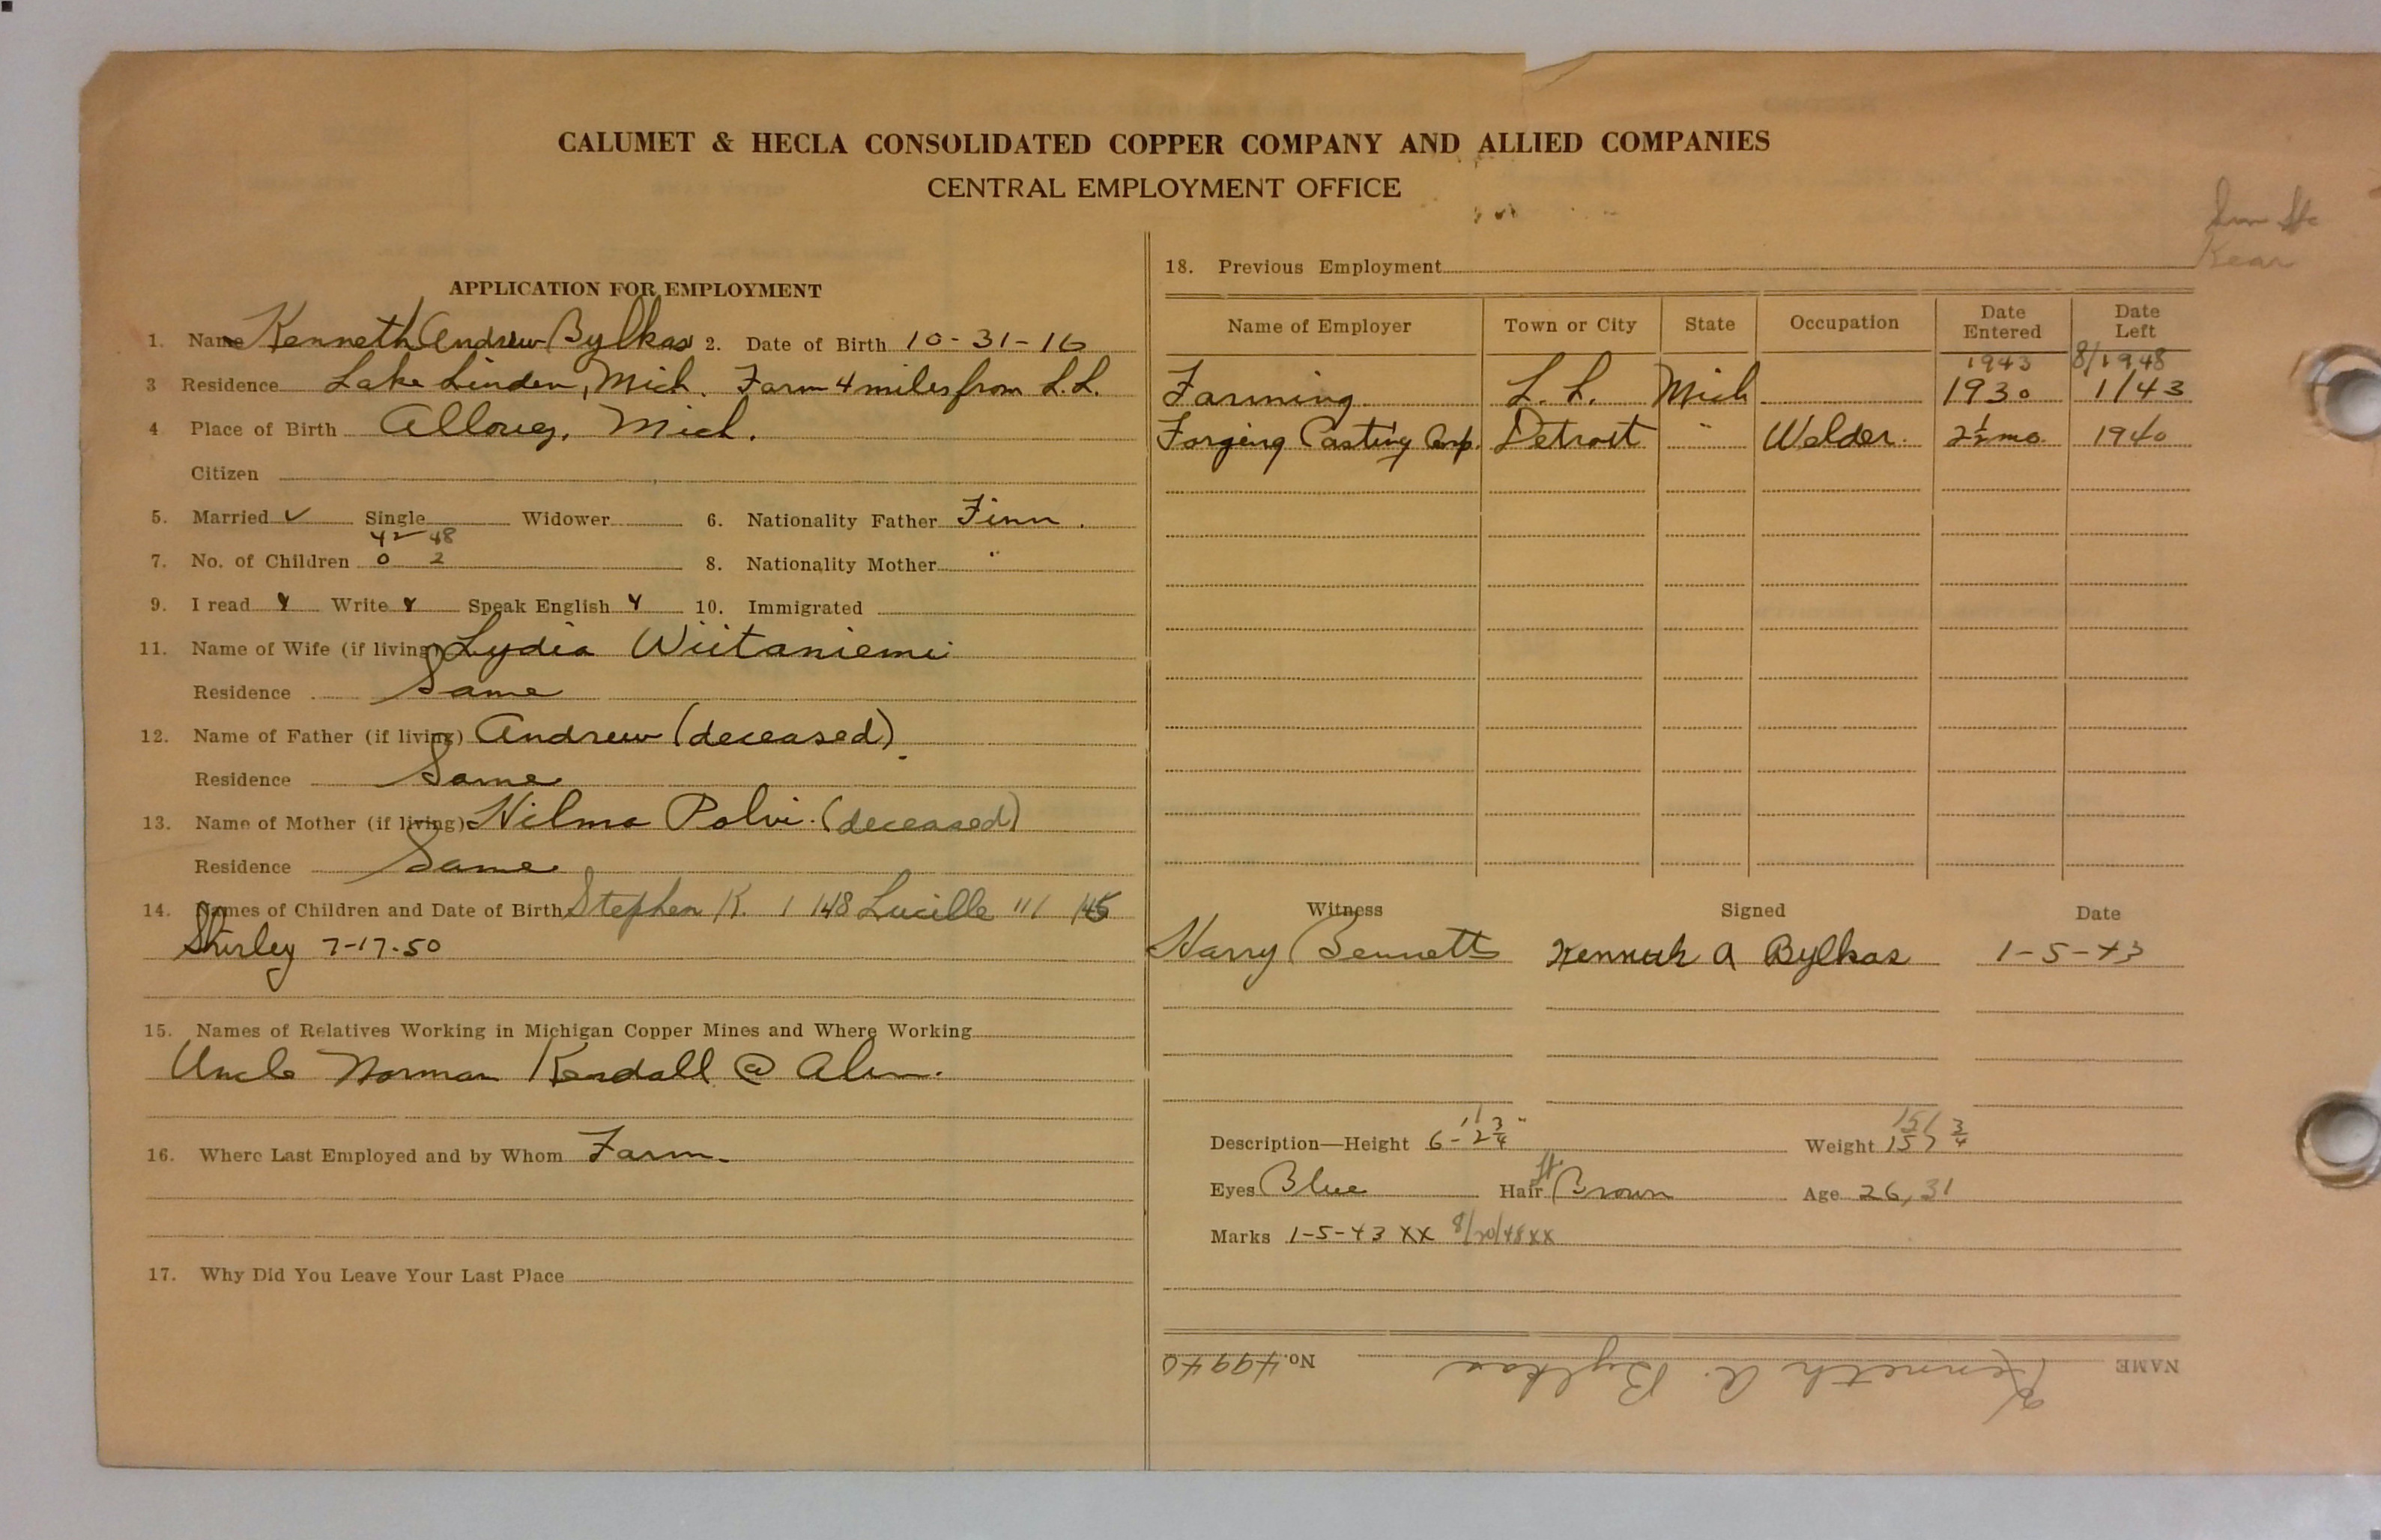 CALUMET & HECLA CONSOLIDATED COPPER COMPANY AND ALLIED COMPANIES
CENTRAL EMPLOYMENT OFFICE
APPLICATION FOR EMPLOYMENT
1. Name Kenneth Andrew Bylkas 2. Date of Birth 10-31-16
3 Residence Lake Linden, Mich. Farm 4 miles from L.L.
4 Place of Birth Allouez, Mich.
Citizen
5. Married ✓ Single Widower 6. Nationality Father Finn.
42 48
7. No. of Children 0 2 8. Nationality Mother "
9. I read Y Write Y Speak English Y 10. Immigrated
11. Name of Wife (if living) Lydia Wiitaniemi
Residence Same
12. Name of Father (if living) Andrew (deceased)
Residence Same
13. Name of Mother (if living) Hilma Polvi. (deceased)
Residence Same
14. Names of Children and Date of Birth Stephen K. 1 148 Lucille
Shirley 7-17-50
15. Names of Relatives Working in Michigan Copper Mines and Where Working
Uncle Norman Kendall @
16. Where Last Employed and by Whom Farm.
17. Why Did You Leave Your Last Place
18. Previous Employment
Kear
Name of Employer Town or City State Occupation Date Entered Date Left
1943 8/1948
Farming L. L. Mich 1930 1/43
Forging Casting Corp. Detroit " Welder. 2½ mo. 1940
Witness Signed Date
Harry Bennetts Kenneth A Bylkas 1-5-43
11
Description—Height 6-2¾" Weight 157 ¾
151
Eyes Blue Hair lt. Brown Age 26, 31
Marks 1-5-43 XX 8/20/48 XX
NAME Kenneth A. Bylkas No. 49940